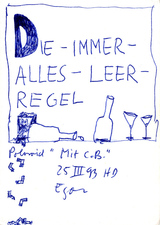 DIE-IMMER-
ALLES-LEER-
REGEL
Polaroid "Mit C.B."
25 III 93 HD
Egon